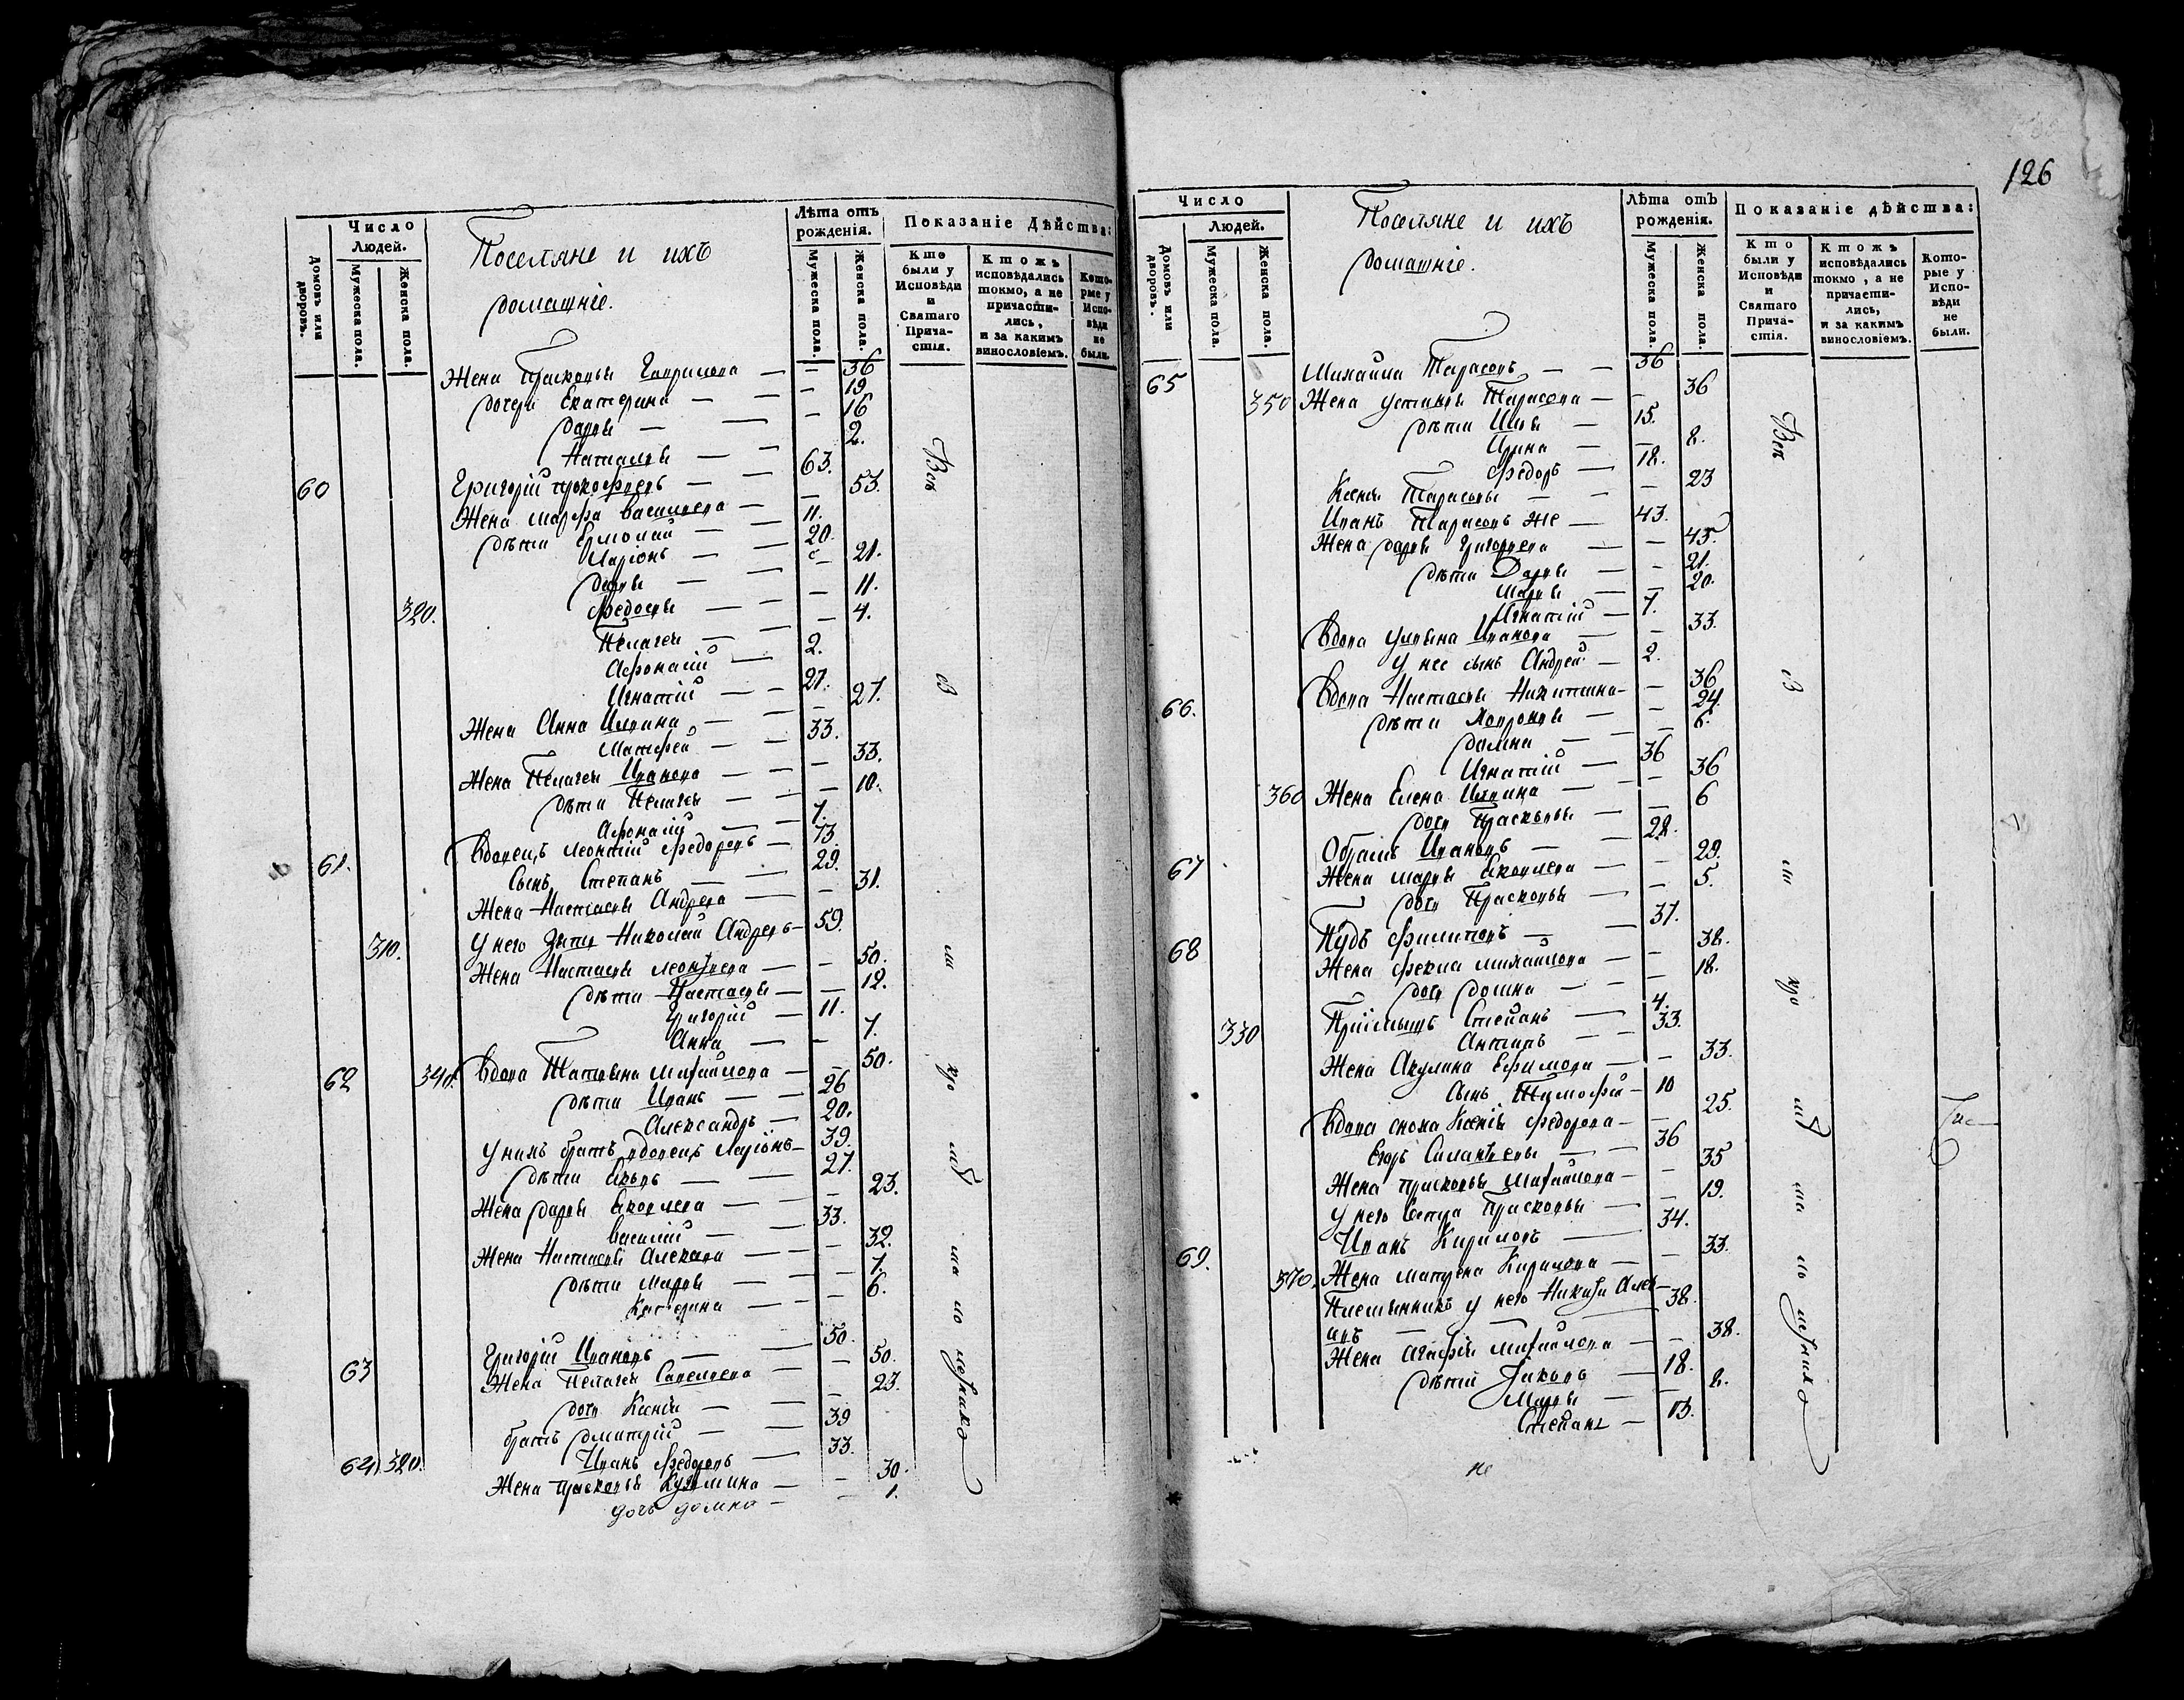 126
Число
Людей.
Домовъ или дворовъ.
Мужеска пола.
Женска пола.
Поселяне и ихъ
домашніе.
Лѣта отъ рожденія.
Мужеска пола.
Женска пола.
Показаніе Дѣйства:
Кто были у Исповѣди и Святаго Причастія.
Ктожъ исповѣдались токмо, а не причастились, и за какимъ винословіемъ.
Которые у Исповѣди не были.
Жена Прасковья Гаврилова — — 36
дочери Екатерина — — 19
Дарья — — 16
Наталья — — 2.
60 Григорій Прокофьевъ — 63.
Жена Марфа Васильева — — 53.
дѣти Ермолай — 11.
Ларіонъ — 20.
Дарья — — 21.
320. Федосья — — 11.
Пелагея — — 4.
Афонасій — 2.
Игнатій — 27.
Жена Анна Ильина — — 27.
Матфей — 33.
Жена Пелагея Иванова — — 33.
дѣти Пелагея — — 10.
Афонасій — 7.
61. Вдовецъ Леонтій Федоровъ — 73.
Сынъ Степанъ — 29.
Жена Настасья Андреева — — 31.
310. У него зять Николай Андреевъ — 59.
Жена Настасья Леонтьева — — 50.
дѣти Настасья — — 12.
Григорій — 11.
Анна — — 7.
62 340. Вдова Татьяна Михайлова — — 50.
дѣти Иванъ — 26
Александръ — 20.
У нихъ братъ вдовецъ Ларіонъ — 39.
дѣти Яковъ — 27.
Жена Дарья Яковлева — — 23.
Василій — 33.
Жена Настасья — — 32.
дѣти Марья — — 7.
Катерина — — 6.
63 Григорій Ивановъ — 50.
Жена Пелагея Савельева — — 50.
дочь Ксенія — — 23.
братъ Дмитрій — 39
64. 320. Иванъ Федоровъ — 33.
Жена Прасковья Кузмина — — 30.
дочь Домна — — 1.
Число
Людей.
Домовъ или дворовъ.
Мужеска пола.
Женска пола.
Поселяне и ихъ
домашніе.
Лѣта отъ рожденія.
Мужеска пола.
Женска пола.
Показаніе дѣйства:
Кто были у Исповѣди и Святаго Причастія.
Ктожъ исповѣдались токмо, а не причастились, и за какимъ винословіемъ.
Которые у Исповѣди не были.
65 Михайла Тарасовъ — — 36
350 Жена Устинья Тарасова — — 36
дѣти Илья — 15.
Ирина — — 8.
Федоръ — 18.
Ксенія Тарасовы — — 23
Иванъ Тарасовъ же — 43.
Жена Дарья Григорьева — — 45.
дѣти Дарья — — 21.
Марья — — 20.
Игнатій — 7.
Вдова Ульяна Иванова — — 33.
у нее сынъ Андрей — 2.
66. Вдова Настасья Никитина — — 36
дѣти — — 24.
Домна — — 6.
Игнатій — 36
360 Жена Елена Ильина — — 36
дочь Прасковья — — 6
67 Ивановъ — 28.
Жена Марья Яковлева — — 29.
дочь Прасковья — — 5.
68 Пудъ Филиповъ — 37.
Жена Фекла Михайлова — — 38.
дочь Домна — — 18.
Пріемышъ Степанъ — 4.
330 Антипъ — 33.
Жена Акулина Ефимова — — 33.
Сынъ Тимофей — 10
Вдова сноха Ксенія Федорова — — 25.
Егоръ — 36
Жена Прасковья Михайлова — — 35
у него сестра Прасковья — — 19.
69. Иванъ Кириловъ — 34.
370. Жена Матрена Кирилова — — 33.
Племянникъ у него — 38.
Жена Агафія Михайлова — — 38.
дѣти Яковъ — 18.
Марья — — 8.
Степанъ — 13.